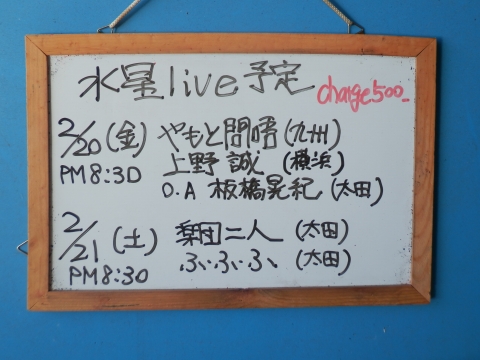 水星live予定
charge500-
2/20(金) やもと開晤(九州)
PM8:30 上野 誠 (横浜)
O.A 板橋晃紀 (太田)
2/21(土) 梨団二人 (太田)
PM8:30 ふふふふ (太田)